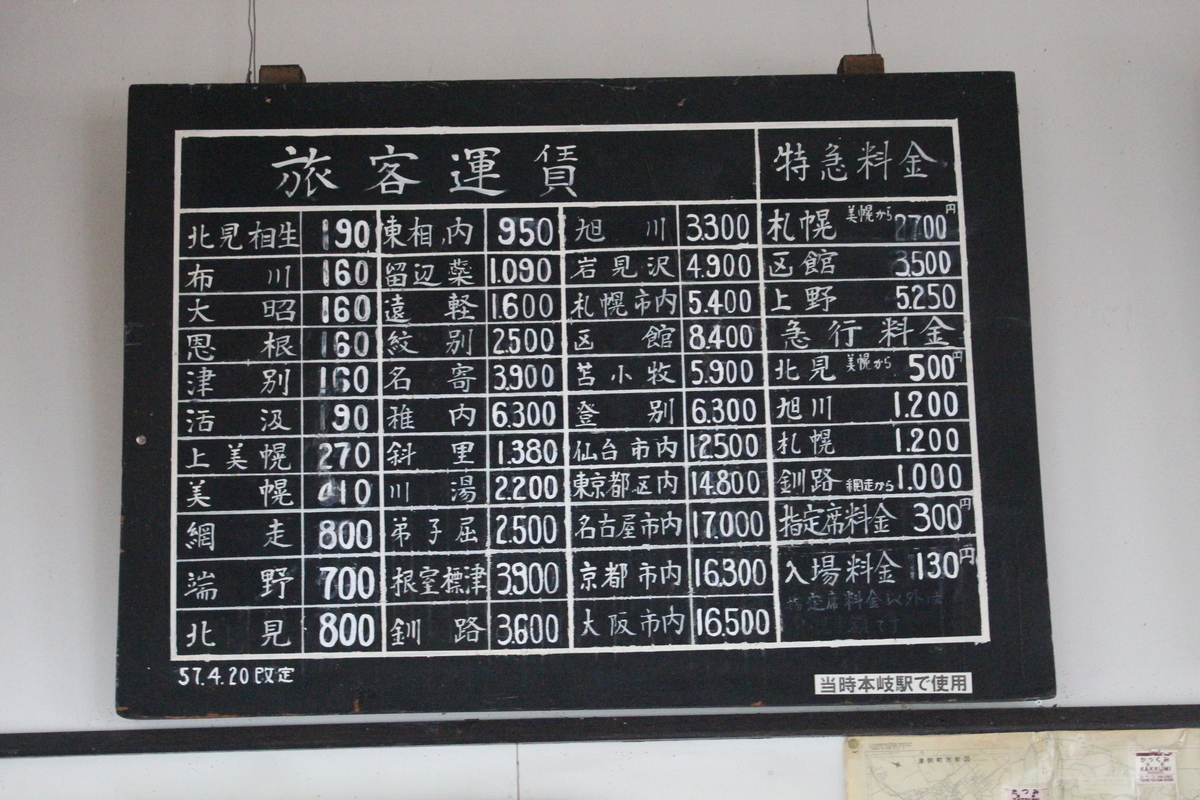 旅客運賃 特急料金
北見相生 190 東相内 950 旭川 3.300 札幌 美幌から 2700円
布川 160 留辺蘂 1.090 岩見沢 4.900 区館 3500
大昭 160 遠軽 1.600 札幌市内 5.400 上野 5.250
恩根 160 紋別 2.500 区館 8.400 急行料金
津別 160 名寄 3.900 苫小牧 5.900 北見 美幌から 500円
活汲 190 稚内 6.300 登別 6.300 旭川 1.200
上美幌 270 斜里 1.380 仙台市内 12.500 札幌 1.200
美幌 410 川湯 2.200 東京都区内 14.800 釧路 網走から 1.000
網走 800 弟子屈 2.500 名古屋市内 17.000 指定席料金 300円
端野 700 根室標津 3.900 京都市内 16.300 入場料金 130円
北見 800 釧路 3.600 大阪市内 16.500
指定席料金以外は
57.4.20改定
当時本岐駅で使用